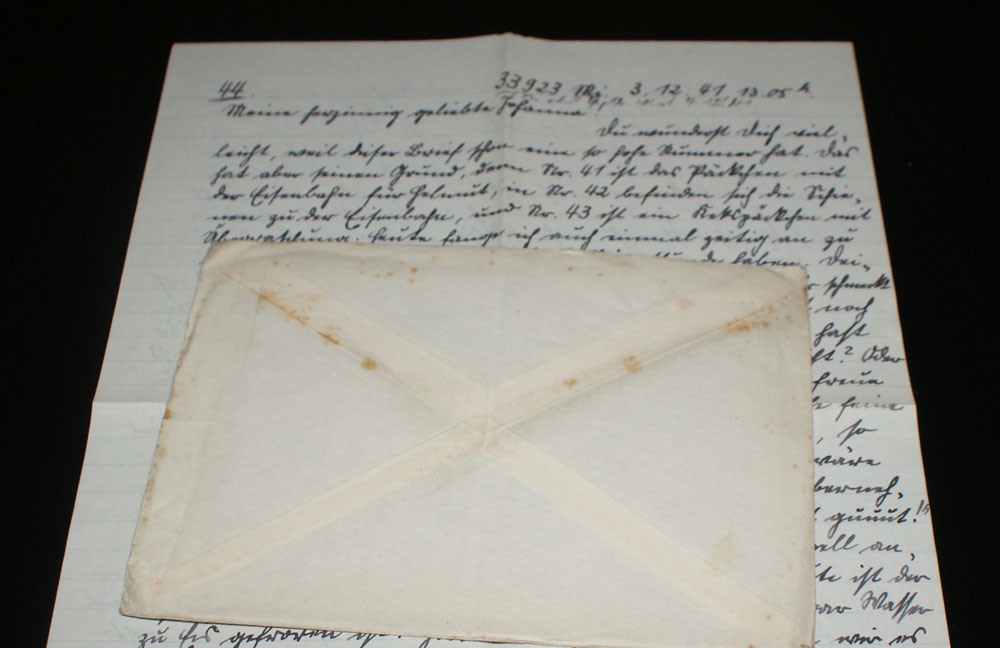 44.
33923 Mi. 3.12.41 13.05 h
Meine herzinnig geliebte Johanna!
Du wunderst Dich viel-
leicht, weil dieser Brief schon eine so hohe Nummer hat. Das
hat aber seinen Grund, denn Nr. 41 ist das Päckchen mit
der Eisenbahn für Helmut, in Nr. 42 befinden sich die Schie-
nen zu der Eisenbahn, und Nr. 43 ist ein Kekspäckchen mit
Überraschung. Heute fange ich auch einmal zeitig an zu
haben. Dei-
schmeckt
noch
hast
? Oder
freue
feine
, so
wäre
berneh-
guuut!
ell an,
ist der
gar Wasser
zu Eis gefroren ist.
wir es